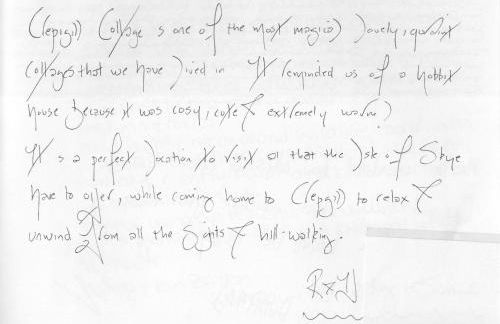 Crepigill Cottage is one of the most magical, lovely, quaint
cottages that we have lived in. It reminded us of a hobbit
house because it was cosy, cute & extremely warm!
It is a perfect location to visit all that the Isle of Skye
have to offer, while coming home to Crepigill to relax &
unwind from all the sights & hill-walking.